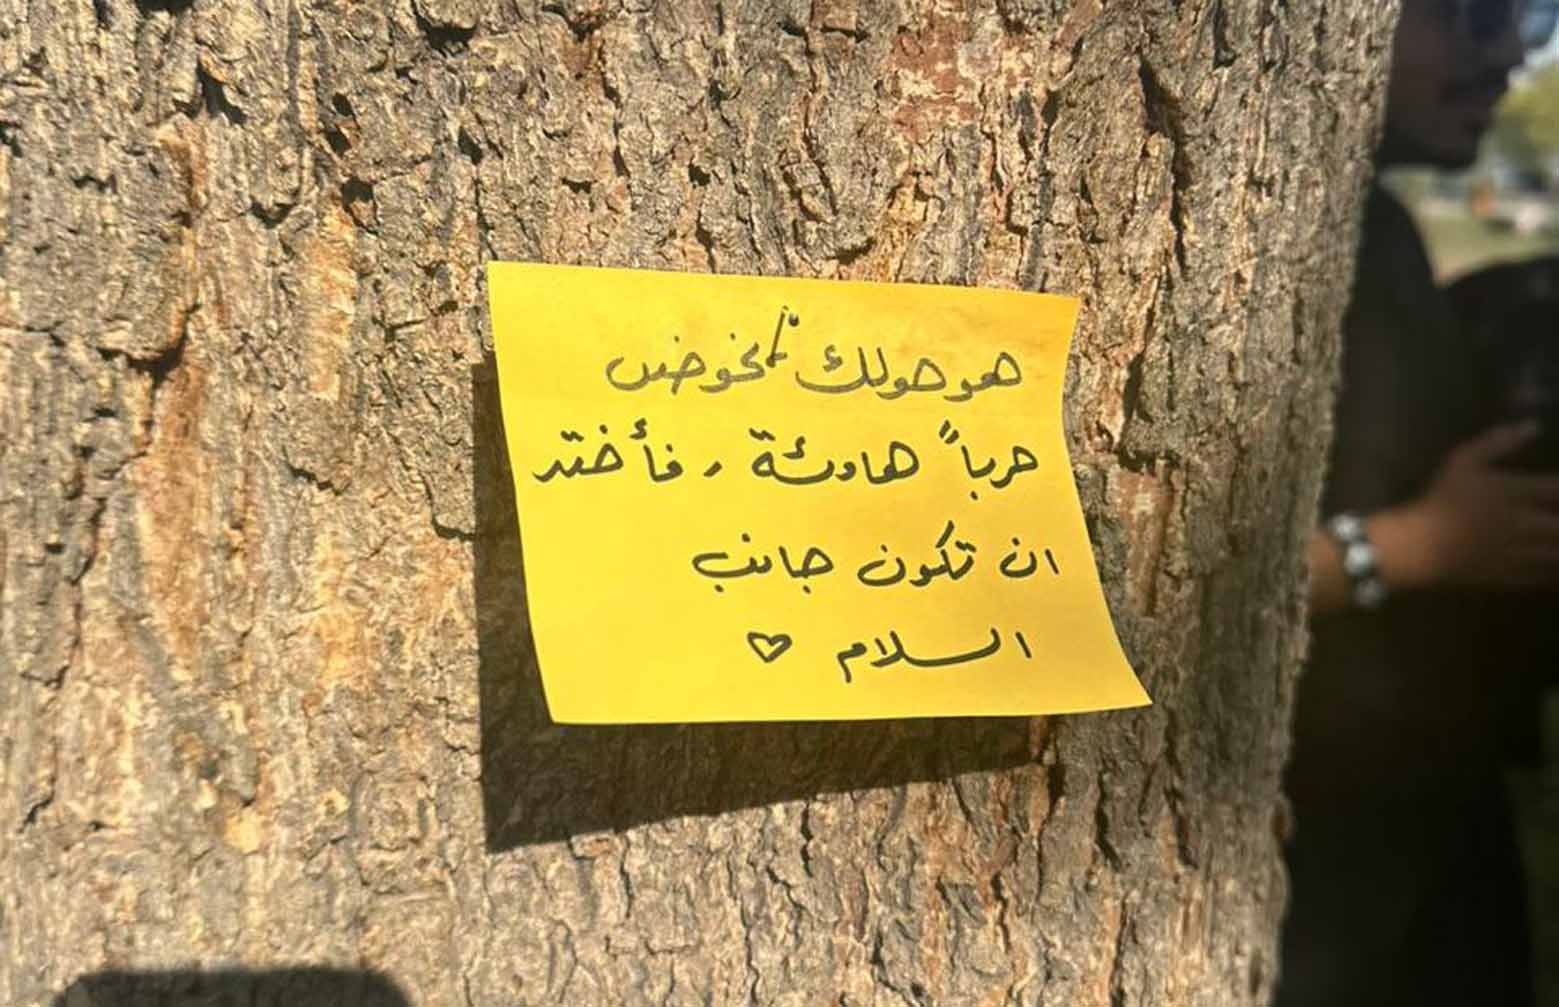 هو هولك نخوض
حرباً هادئة ، فأختر
ان تكون جانب
السلام ♡